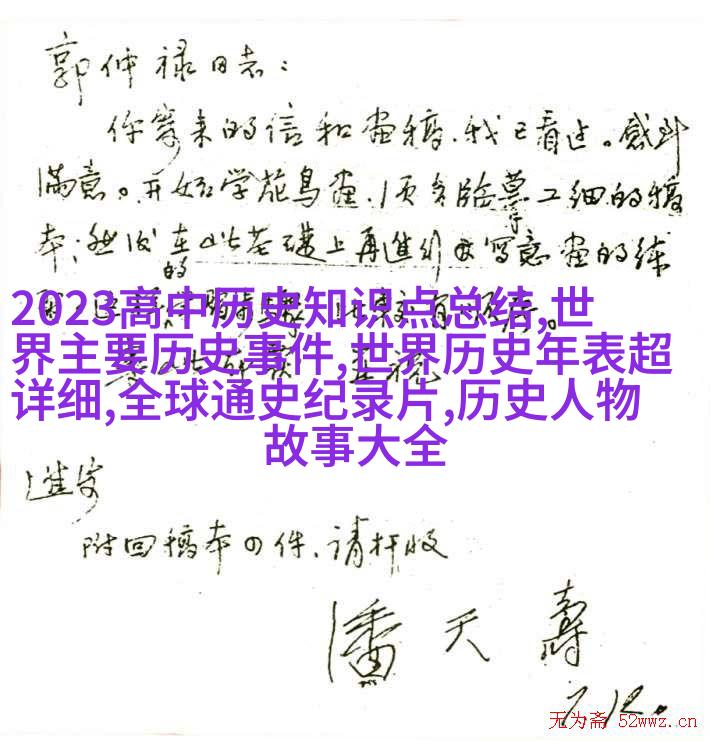 郭仲禄同志：
你寄来的信和画稿，我已看过。感到
满意。开始学花鸟画，须多临摹工细的稿
本；然后在此基础上再进行写意画的练
的
2023高中历史知识点总结,世
界主要历史事件,世界历史年表超
详细,全球通史纪录片,历史人物
故事大全
进安
附回稿本四件、请检收
潘天寿
7.12.
无为斋 52wwz.cn